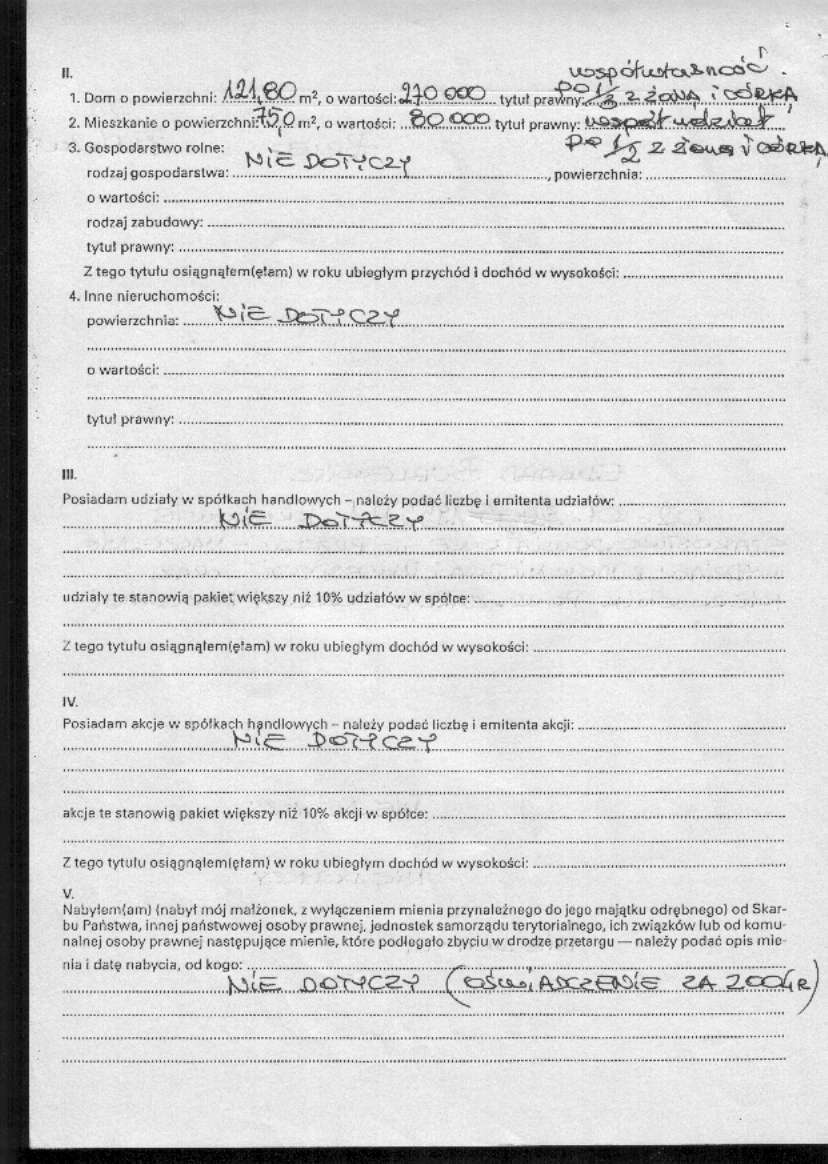 II.
współwłasność
1. Dom o powierzchni: 121,80 m², o wartości: 270 000 tytuł prawny: po 1/2 z żoną i córką
2. Mieszkanie o powierzchni: 75,0 m², o wartości: 80 000 tytuł prawny: współudział
3. Gospodarstwo rolne: po 1/2 z żoną i córką
rodzaj gospodarstwa: NIE DOTYCZY, powierzchnia:
o wartości:
rodzaj zabudowy:
tytuł prawny:
Z tego tytułu osiągnąłem(ęłam) w roku ubiegłym przychód i dochód w wysokości:
4. Inne nieruchomości:
powierzchnia: NIE DOTYCZY
o wartości:
tytuł prawny:
III.
Posiadam udziały w spółkach handlowych – należy podać liczbę i emitenta udziałów:
NIE DOTYCZY
udziały te stanowią pakiet większy niż 10% udziałów w spółce:
Z tego tytułu osiągnąłem(ęłam) w roku ubiegłym dochód w wysokości:
IV.
Posiadam akcje w spółkach handlowych – należy podać liczbę i emitenta akcji:
NIE DOTYCZY
akcje te stanowią pakiet większy niż 10% akcji w spółce:
Z tego tytułu osiągnąłem(ęłam) w roku ubiegłym dochód w wysokości:
V.
Nabyłem(am) (nabył mój małżonek, z wyłączeniem mienia przynależnego do jego majątku odrębnego) od Skar-
bu Państwa, innej państwowej osoby prawnej, jednostek samorządu terytorialnego, ich związków lub od komu-
nalnej osoby prawnej następujące mienie, które podlegało zbyciu w drodze przetargu — należy podać opis mie-
nia i datę nabycia, od kogo:
NIE DOTYCZY (OŚWIADCZENIE ZA 2004R)